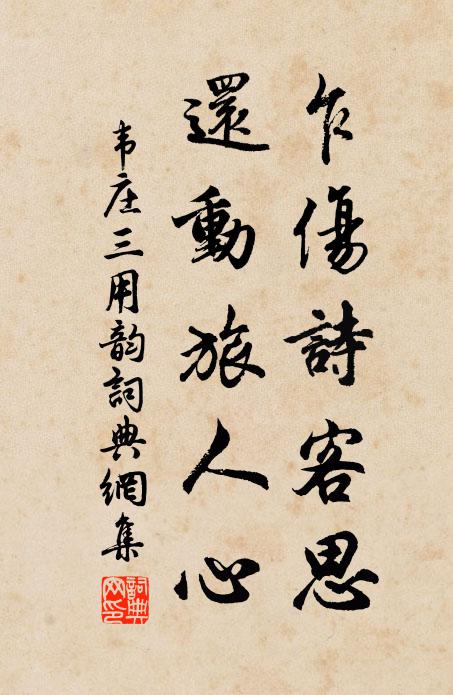 乍傷詩客思
還動旅人心
韦庄三用韵詞典網集
詞典網印